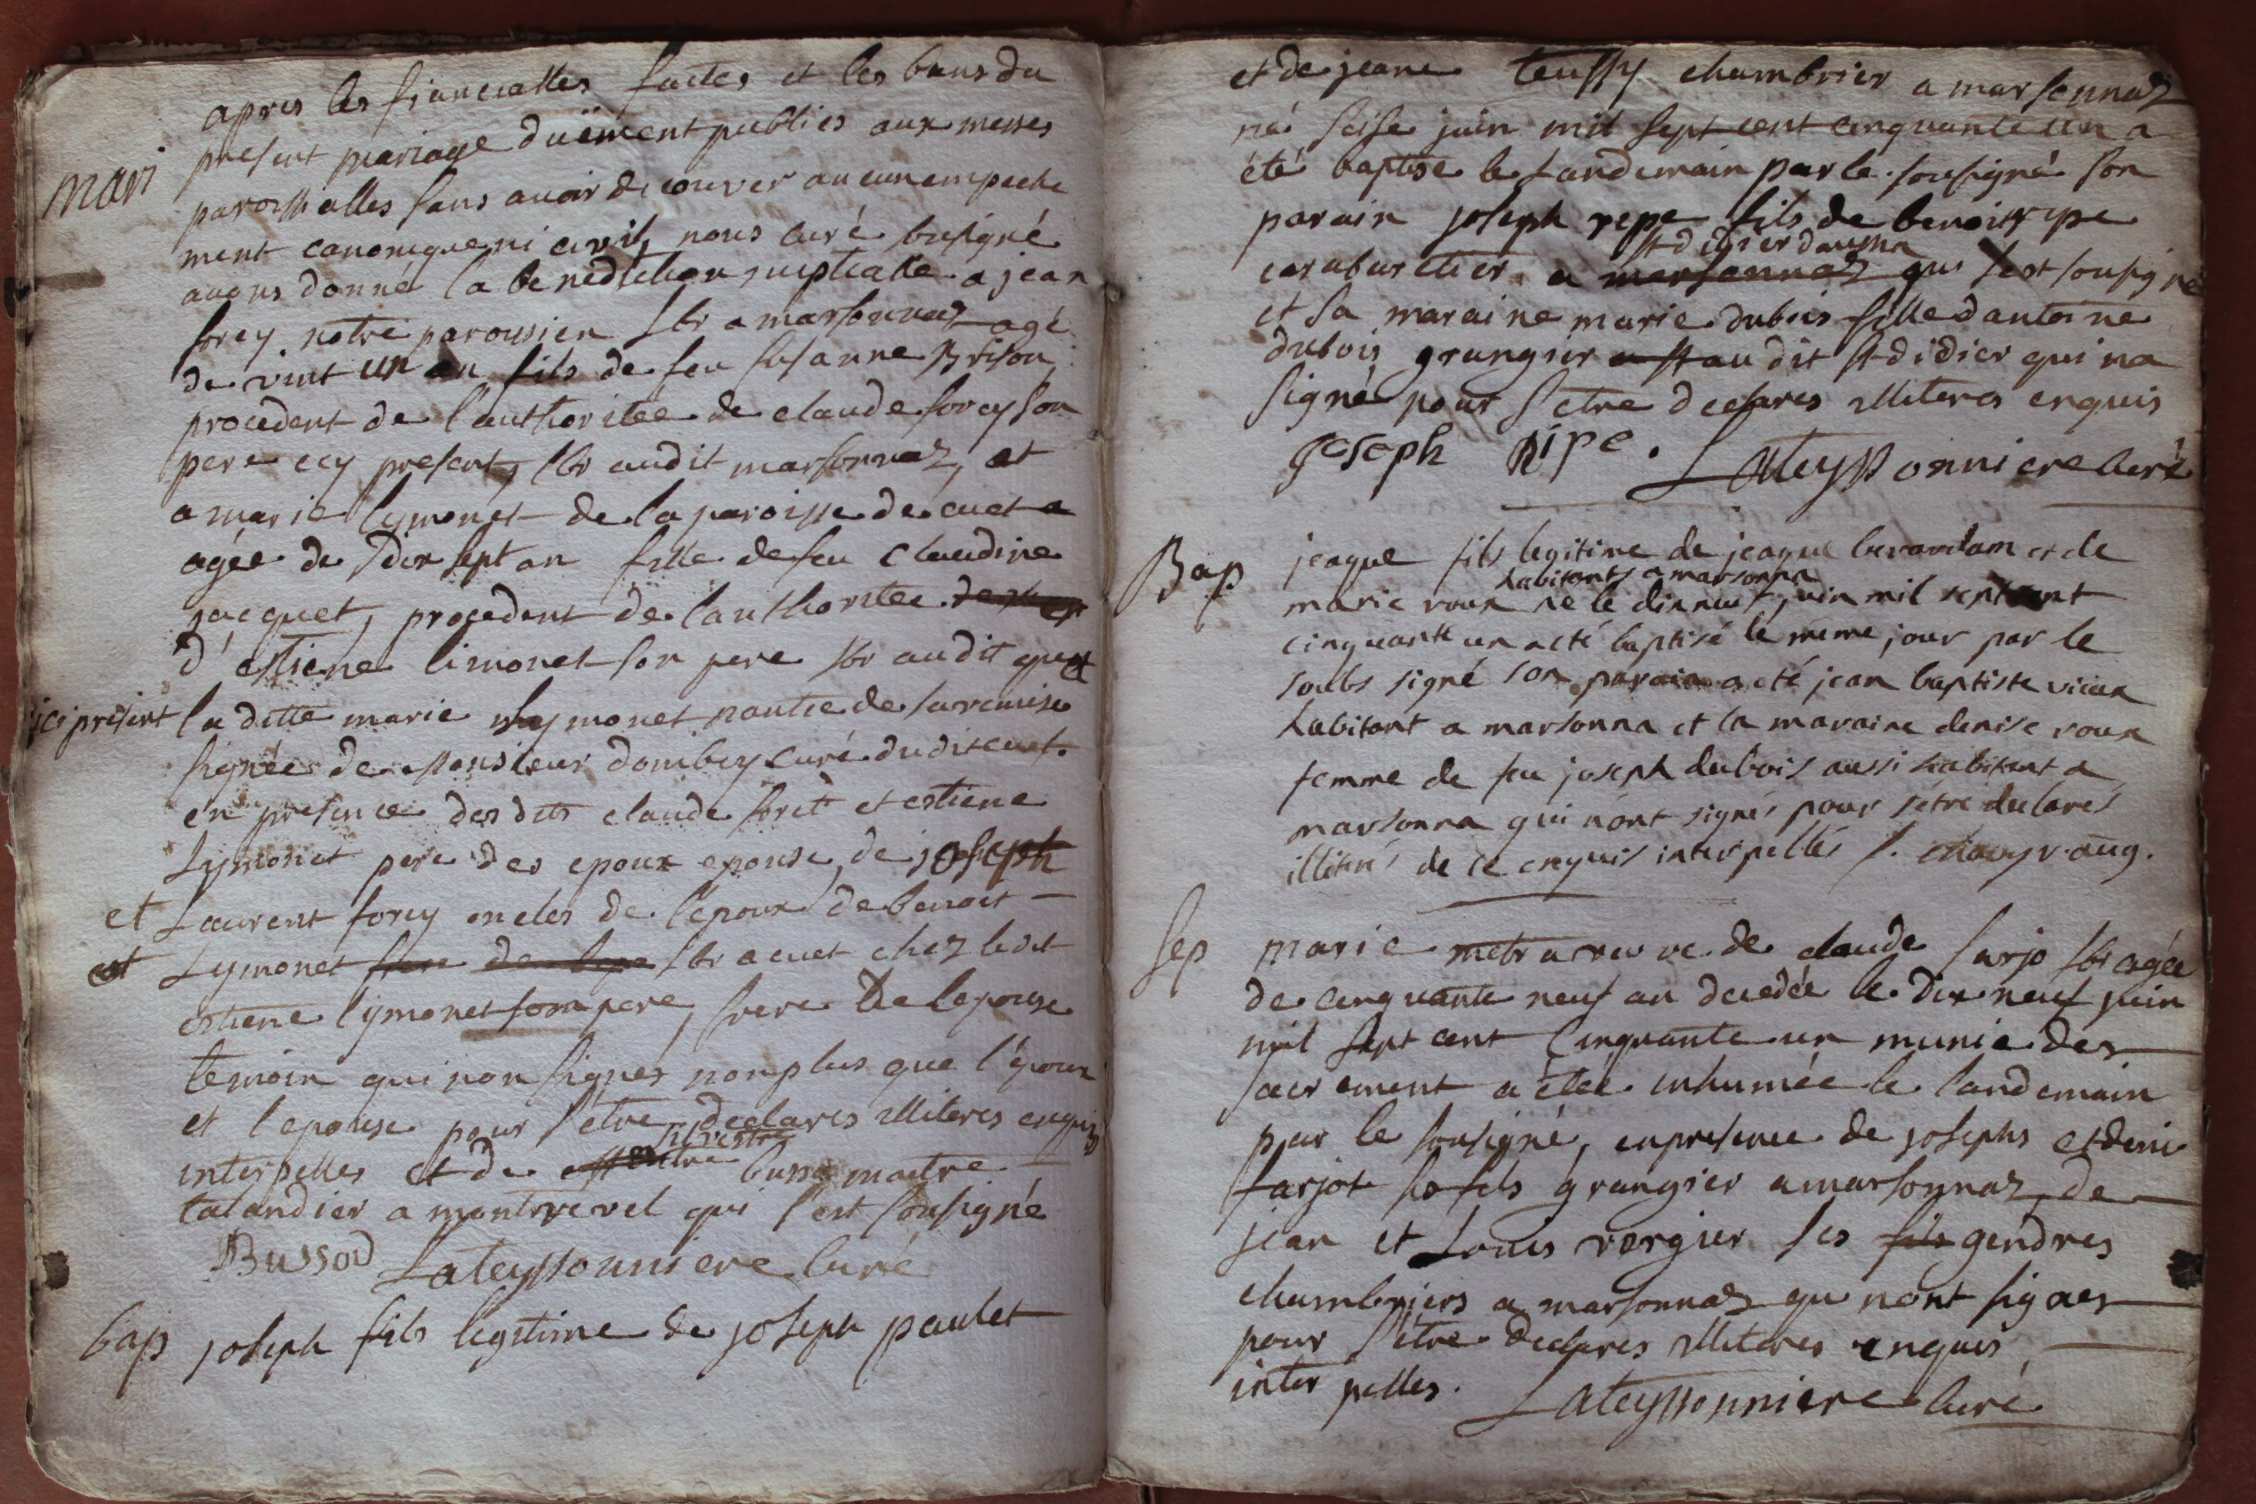 apres les fiancialles faites et les bans du
mari
present mariage duëment publies aux messes
paroissialles sans avoir decouver aucun empeche
ment canonique ni civil, nous curé susigné
avons donné la benediction nuptialle a jean
forey notre paroissien hbr a marsonnaz agé
de vint un an fils de feu susanne Brison
procedent de l'authoritee de claude forey son
pere icy present, hbr audit marsonnaz, et
a marie lymonet de la paroisse de cuet
agée de dix sept an fille de feu claudine
jacquet, procedent de l'authoritee
d'estiene limonet son pere hbr au dit cuet
ici present la ditte marie lymonet nantie de sa remise
signée de monsieur dombey curé dudit cuet.
en presence des dits claude foret et estiene
Lymonet pere des epoux epouse, de joseph
et Laurent forey oncles de l'epoux de benoit
et Lymonet frere de lepo hbr a cuet chez ledit
estiene lymonet son pere, frere de lepouse
temoin qui non signes nomplus que l'époux
et l'epouse pour s'etre declares illiteres enquis
silvestre
interpelles et de busso maitre
talandier a montrevel qui s'est sousigné
Bussod Lateyssonniere curé
bap joseph fils legitime de joseph paulet
et de jeane teussy chambrier a marsonnaz
né seise juin mil sept cent cinquante un a
été baptise le landemain par le sousigné son
parain joseph repe fils de benoit ripe
st didier daussia
carabaretier a marsonnaz qui s'est sousigné
et sa maraine marie dubois fille d'antoine
dubois grangier a st au dit st didier qui na
signé pour s'etre declares illiteres enquis
joseph Ripe. Lateyssonniere curé
Bap jeaque fils legitime de jeaque berardam et de
habitants a marsonna
marie roux né le dixneuf juin mil sept cent
cinquante un a cté baptisé le même jour par le
soubs signé son parain a eté jean baptiste vieux
habitant a marsonna et la maraine denise roux
femme de feu joseph dubois aussi habitant a
marsonna qui n'ont signés pour s'étre declarés
illitérés de ce enquis interpellés f. chavy r. aug.
sep marie metra veuve de claude farjo hbr agée
de cinquante neuf an decedée le dix neuf juin
mil sept cent cinquante un munie des
sacrement a étée inhumée le landemain
par le sousigné, en presence de josephs et deni
farjot ses fils grangier a marsonnaz, de
jean et Louis vergier ses fils gendres
chambriers a marsonnaz qui nont signes
pour s'etre declares illiteres enquis
inter pelles. Lateyssonniere curé